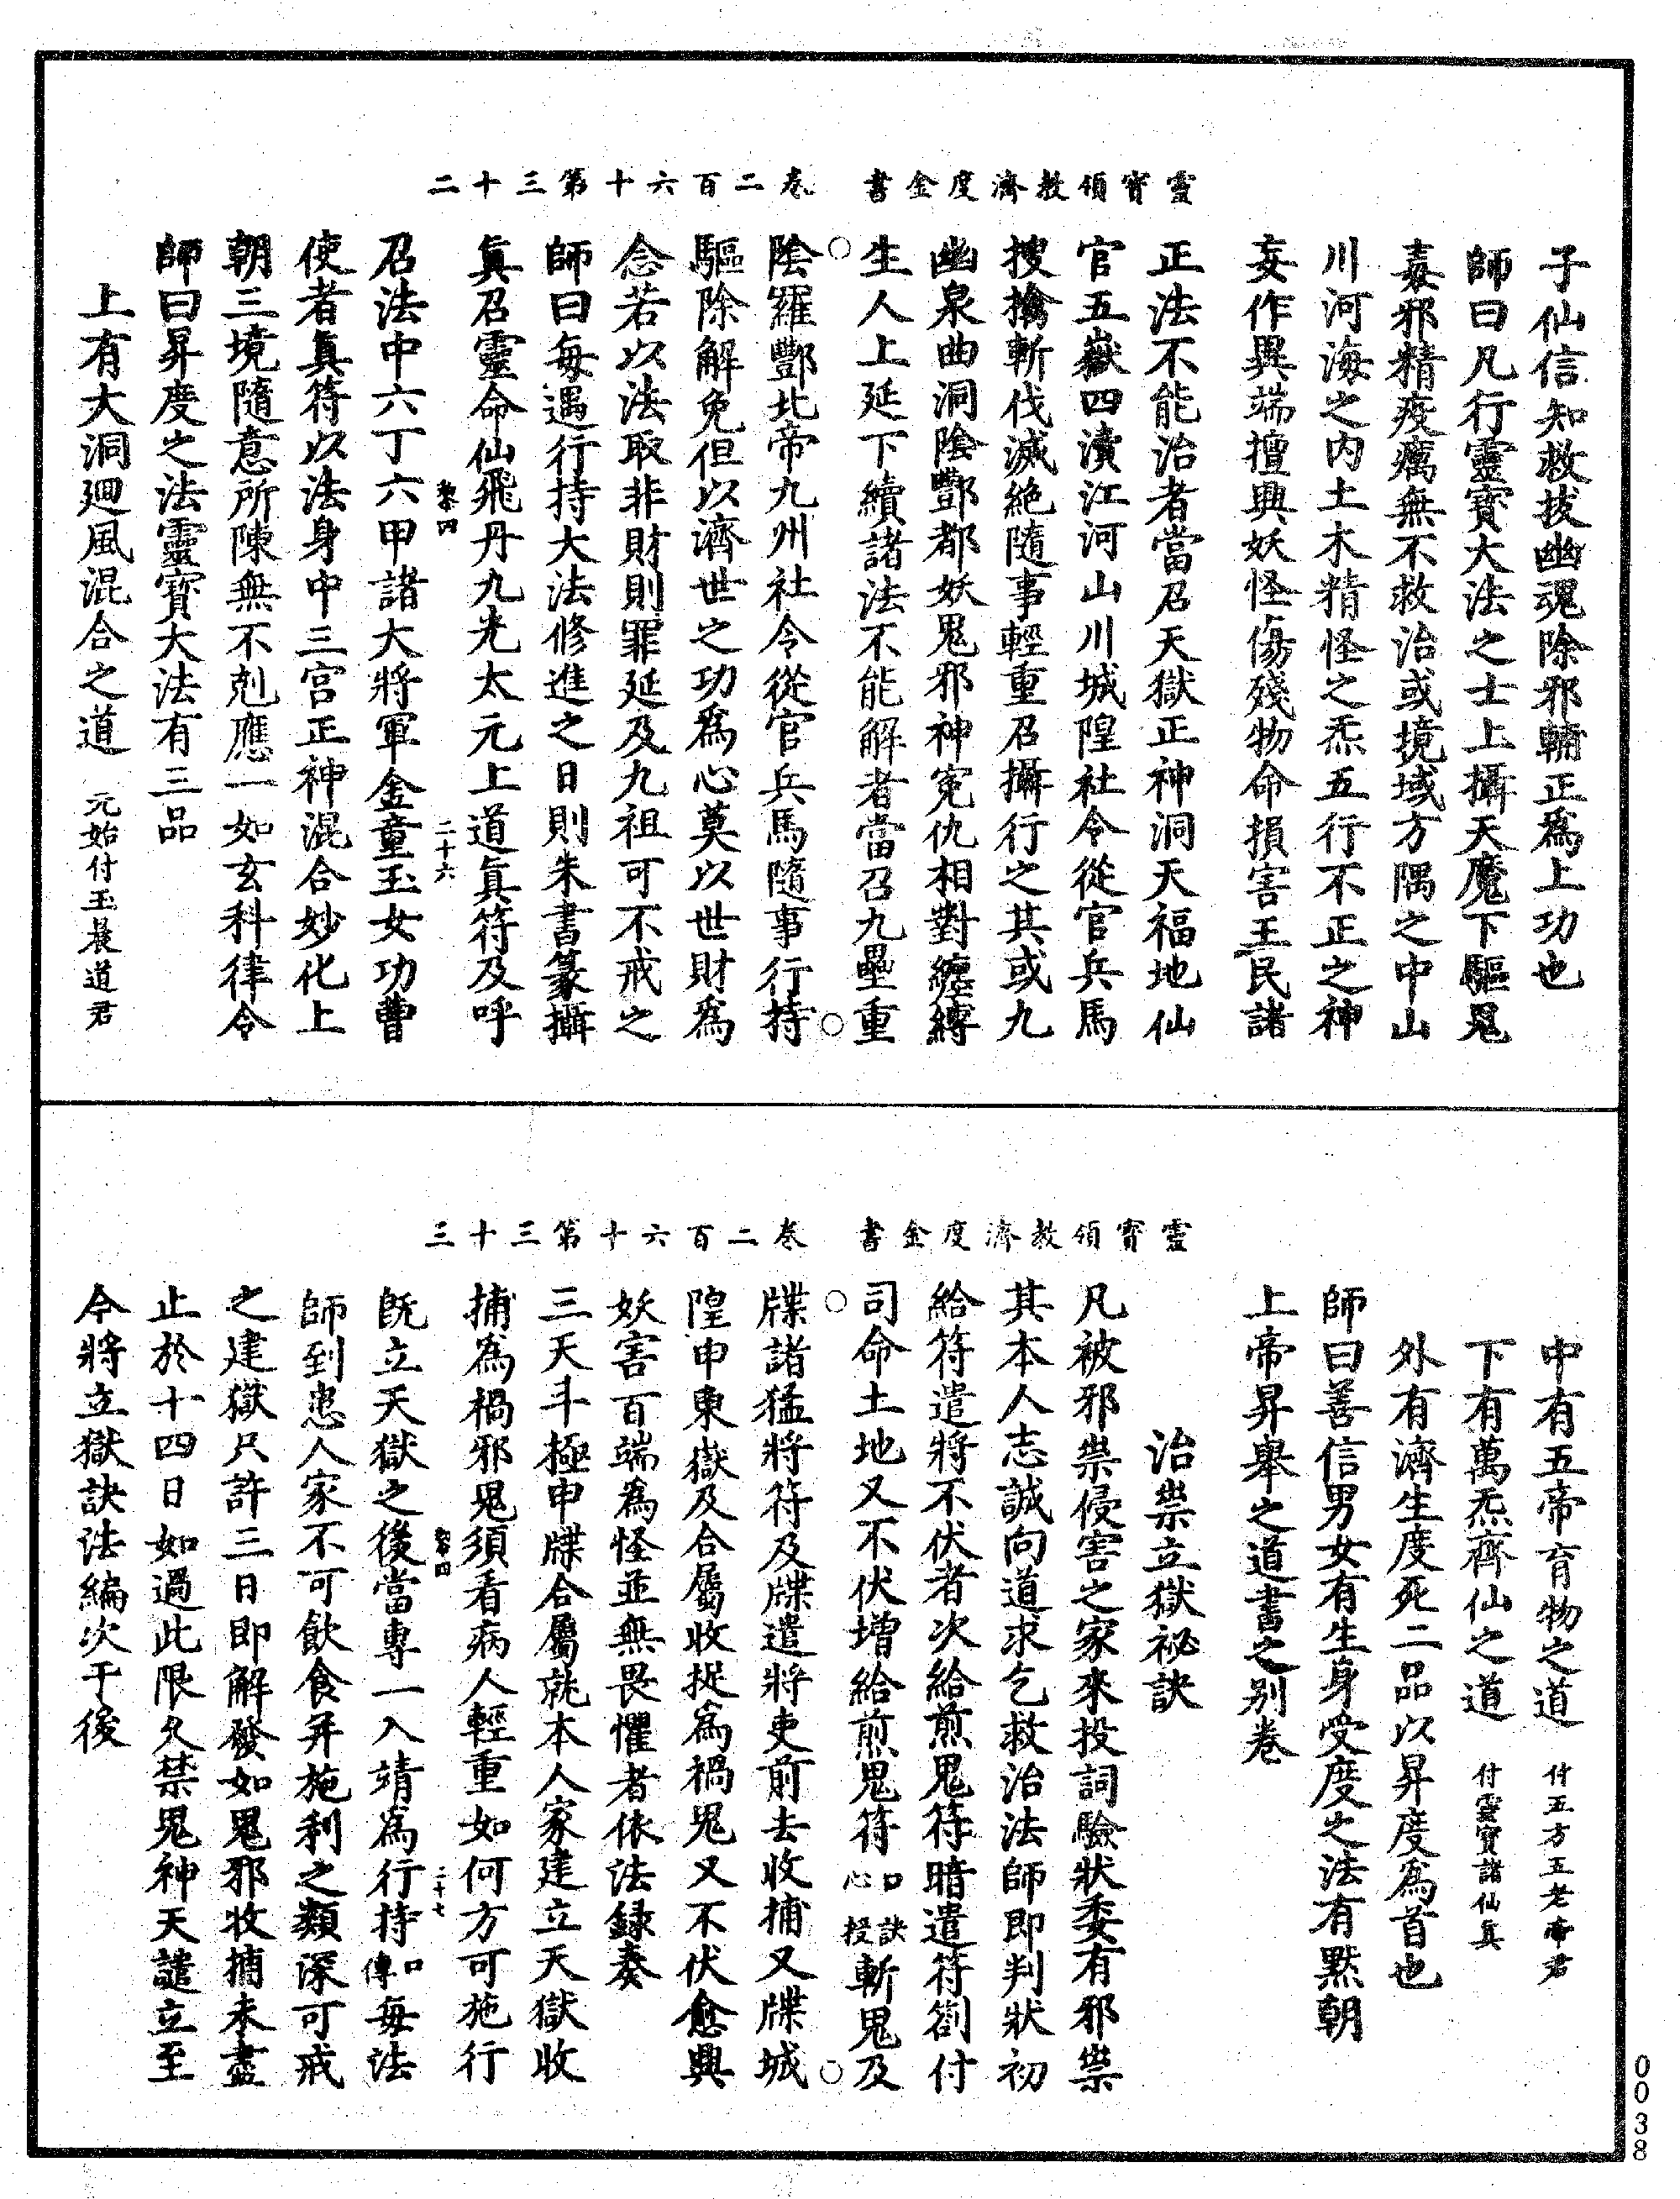 靈寶領教濟度金書　卷二百六十第三十二
子仙信知救拔幽魂除邪輔正爲上功也
師曰凡行靈寶大法之士上攝天魔下驅鬼
毒邪精疫癘無不救治或境域方隅之中山
川河海之内土木精怪之炁五行不正之神
妄作異端擅興妖怪傷殘物命損害王民諸
正法不能治者當召天獄正神洞天福地仙
官五嶽四瀆江河山川城隍社令從官兵馬
搜擒斬伐滅絕隨事輕重召攝行之其或九
幽泉曲洞陰酆都妖鬼邪神冤仇相對纏縛
生人上延下續諸法不能解者當召九壘重
陰羅酆北帝九州社令從官兵馬隨事行持
驅除解免但以濟世之功爲心莫以世財爲
念若以法取非財則罪延及九祖可不戒之
師曰每遇行持大法修進之日則朱書篆攝
眞召靈命仙飛丹九光太元上道眞符及呼
召法中六丁六甲諸大將軍金童玉女功曹
使者眞符以法身中三宮正神混合妙化上
朝三境隨意所陳無不剋應一如玄科律令
師曰昇度之法靈寶大法有三品
上有大洞迴風混合之道　元始付玉晨道君
二十六
靈寶領教濟度金書　卷二百六十第三十三
中有五帝育物之道　付五方五老帝君
下有萬炁齊仙之道　付靈寶諸仙眞
外有濟生度死二品以昇度爲首也
師曰善信男女有生身受度之法有黙朝
上帝昇舉之道書之别卷
治祟立獄祕訣
凡被邪祟侵害之家來投詞驗狀委有邪祟
其本人志誠向道求乞救治法師即判狀初
給符遣將不伏者次給煎鬼符暗遣符劄付
司命土地又不伏增給煎鬼符口訣心授斬鬼及
牒諸猛將符及牒遣將吏前去收捕又牒城
隍申東嶽及合屬收捉爲禍鬼又不伏愈興
妖害百端爲怪並無畏懼者依法録奏
三天斗極申牒合屬就本人家建立天獄收
捕爲禍邪鬼須看病人輕重如何方可施行
旣立天獄之後當專一入靖爲行持口傳每法
師到患人家不可飲食并施利之類深可戒
之建獄只許三日即解發如鬼邪收捕未盡
止於十四日如過此限久禁鬼神天譴立至
今將立獄訣法編次于後
二十七
0038